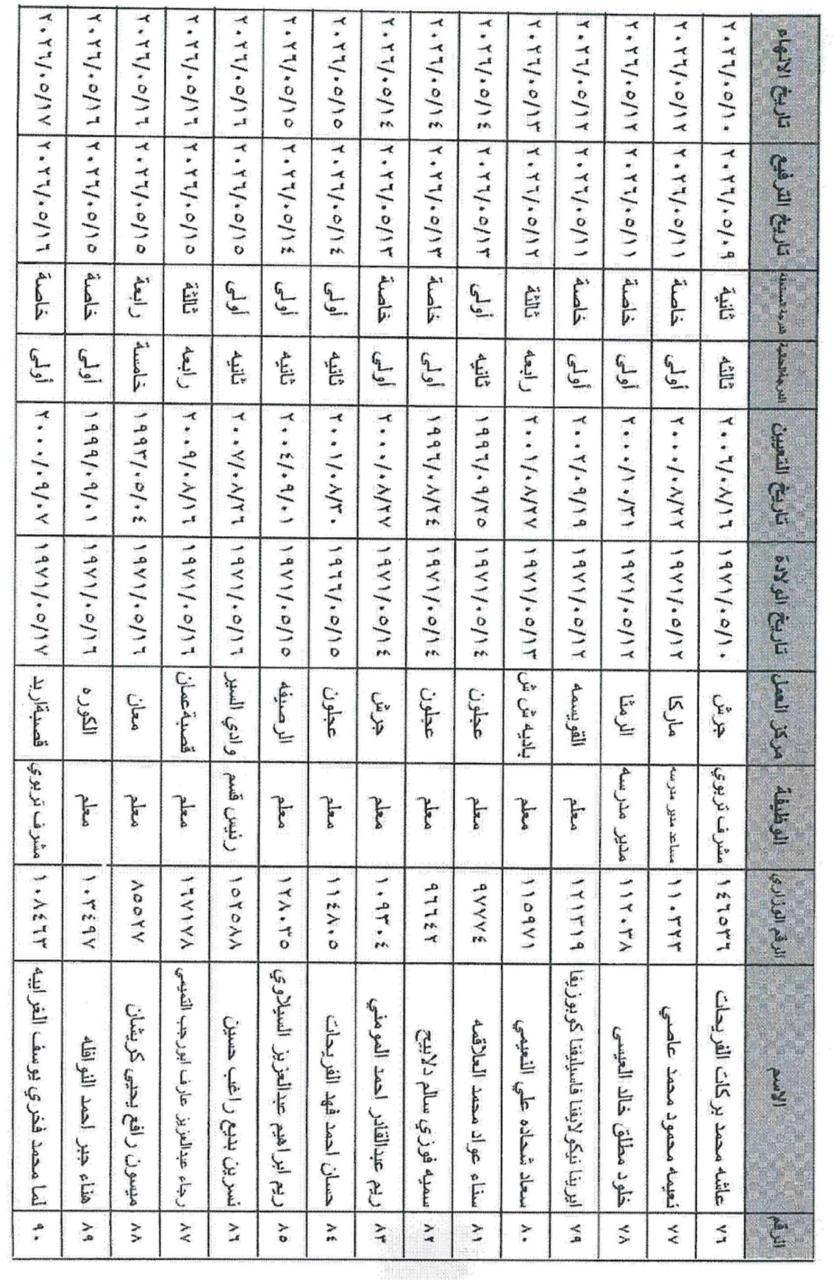 الرقم الاسم الرقم الوزاري الوظيفة مركز العمل تاريخ الولادة تاريخ التعيين الدرجة الحالية الدرجة المستحقة تاريخ الترفيع تاريخ الانهاء
٧٦ عائشه محمد بركات الفريحات ١٤٦٥٣٦ مشرف تربوي جرش ١٩٧١/٠٥/١٠ ٢٠٠٦/٠٨/١٦ ثالثه ثانية ٢٠٢٦/٠٥/٠٩ ٢٠٢٦/٠٥/١٠
٧٧ نعيمه محمود محمد عاصي ١١٠٣٢٣ مساعد مدير مدرسه ماركا ١٩٧١/٠٥/١٢ ٢٠٠٠/٠٨/٢٢ أولى خاصة ٢٠٢٦/٠٥/١١ ٢٠٢٦/٠٥/١٢
٧٨ خلود مطلق خالد العيسى ١١٢٠٣٨ مدير مدرسه الرمثا ١٩٧١/٠٥/١٢ ٢٠٠٠/١٠/٣١ أولى خاصة ٢٠٢٦/٠٥/١١ ٢٠٢٦/٠٥/١٢
٧٩ ايرينا نيكولايفنا فاسيليفنا كوبوزيفا ١٢١٣١٩ معلم القويسمه ١٩٧١/٠٥/١٢ ٢٠٠٢/٠٩/١٩ أولى خاصة ٢٠٢٦/٠٥/١١ ٢٠٢٦/٠٥/١٢
٨٠ سعاد شحاده علي النعيمي ١١٥٩٧١ معلم باديه ش ش ١٩٧١/٠٥/١٣ ٢٠٠١/٠٨/٢٧ رابعه ثالثة ٢٠٢٦/٠٥/١٢ ٢٠٢٦/٠٥/١٣
٨١ سناء عواد محمد العلاقمه ٩٧٧٧٤ معلم عجلون ١٩٧١/٠٥/١٤ ١٩٩٦/٠٩/٢٥ ثانيه أولى ٢٠٢٦/٠٥/١٣ ٢٠٢٦/٠٥/١٤
٨٢ سميه فوزي سالم دلابيح ٩٦٦٤٢ معلم عجلون ١٩٧١/٠٥/١٤ ١٩٩٦/٠٨/٢٤ أولى خاصة ٢٠٢٦/٠٥/١٣ ٢٠٢٦/٠٥/١٤
٨٣ ريم عبدالقادر احمد المومني ١٠٩٣٠٤ معلم جرش ١٩٧١/٠٥/١٤ ٢٠٠٠/٠٨/٢٧ أولى خاصة ٢٠٢٦/٠٥/١٣ ٢٠٢٦/٠٥/١٤
٨٤ حسان احمد فهد الفريحات ١١٤٨٠٥ معلم عجلون ١٩٦٦/٠٥/١٥ ٢٠٠١/٠٨/٣٠ ثانيه أولى ٢٠٢٦/٠٥/١٤ ٢٠٢٦/٠٥/١٥
٨٥ ريم ابراهيم عبدالعزيز السيلاوي ١٢٨٠٣٥ معلم الرصيفه ١٩٧١/٠٥/١٥ ٢٠٠٤/٠٩/٠١ ثانيه أولى ٢٠٢٦/٠٥/١٤ ٢٠٢٦/٠٥/١٥
٨٦ نسرين بديع راغب حسين ١٥٢٥٨٨ رئيس قسم وادي السير ١٩٧١/٠٥/١٦ ٢٠٠٧/٠٨/٢٦ ثانيه أولى ٢٠٢٦/٠٥/١٥ ٢٠٢٦/٠٥/١٦
٨٧ رجاء عبدالعزيز عارف ابورجب التميمي ١٦٧١٧٨ معلم قصبةعمان ١٩٧١/٠٥/١٦ ٢٠٠٩/٠٨/١٦ رابعه ثالثة ٢٠٢٦/٠٥/١٥ ٢٠٢٦/٠٥/١٦
٨٨ ميسون رافع يحيى كريشان ٨٥٥٢٧ معلم معان ١٩٧١/٠٥/١٦ ١٩٩٣/٠٥/٠٤ خامسة رابعة ٢٠٢٦/٠٥/١٥ ٢٠٢٦/٠٥/١٦
٨٩ هناء جبر احمد النوافله ١٠٣٤٩٧ معلم الكوره ١٩٧١/٠٥/١٦ ١٩٩٩/٠٩/٠١ أولى خاصة ٢٠٢٦/٠٥/١٥ ٢٠٢٦/٠٥/١٦
٩٠ لما محمد فخري يوسف الغرايبه ١٠٨٤٦٣ مشرف تربوي قصبةاربد ١٩٧١/٠٥/١٧ ٢٠٠٠/٠٩/٠٧ أولى خاصة ٢٠٢٦/٠٥/١٦ ٢٠٢٦/٠٥/١٧